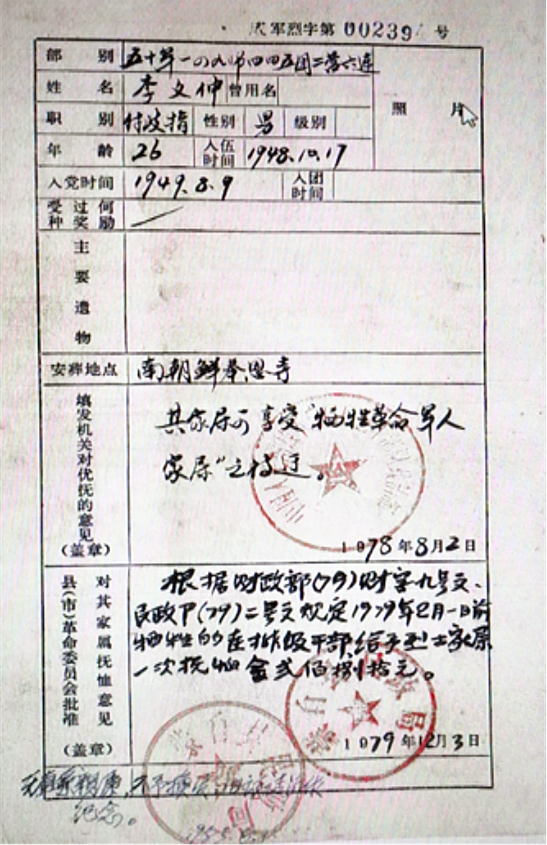 军烈字第 00239 号
部别 五十军一四九师四四五团二营六连
姓名 李文仲 曾用名
照片
职别 付政指 性别 男 级别
年龄 26 入伍时间 1948.10.17
入党时间 1949.8.9 入团时间
受过何种奖励
主要遗物
安葬地点 南朝鲜奉恩寺
填发机关对优抚的意见（盖章）
其家属可享受"牺牲革命军人
家属"之待迂。
1978年8月2日
县（市）革命委员会批准对其家属抚恤意见（盖章）
根据财政部(79)财字九号文、
民政下(79)二号文规定1979年2月一日前
牺牲的在排级干部给予烈士家属
一次抚恤金贰佰捌拾元。
1979年12月3日
纪念。